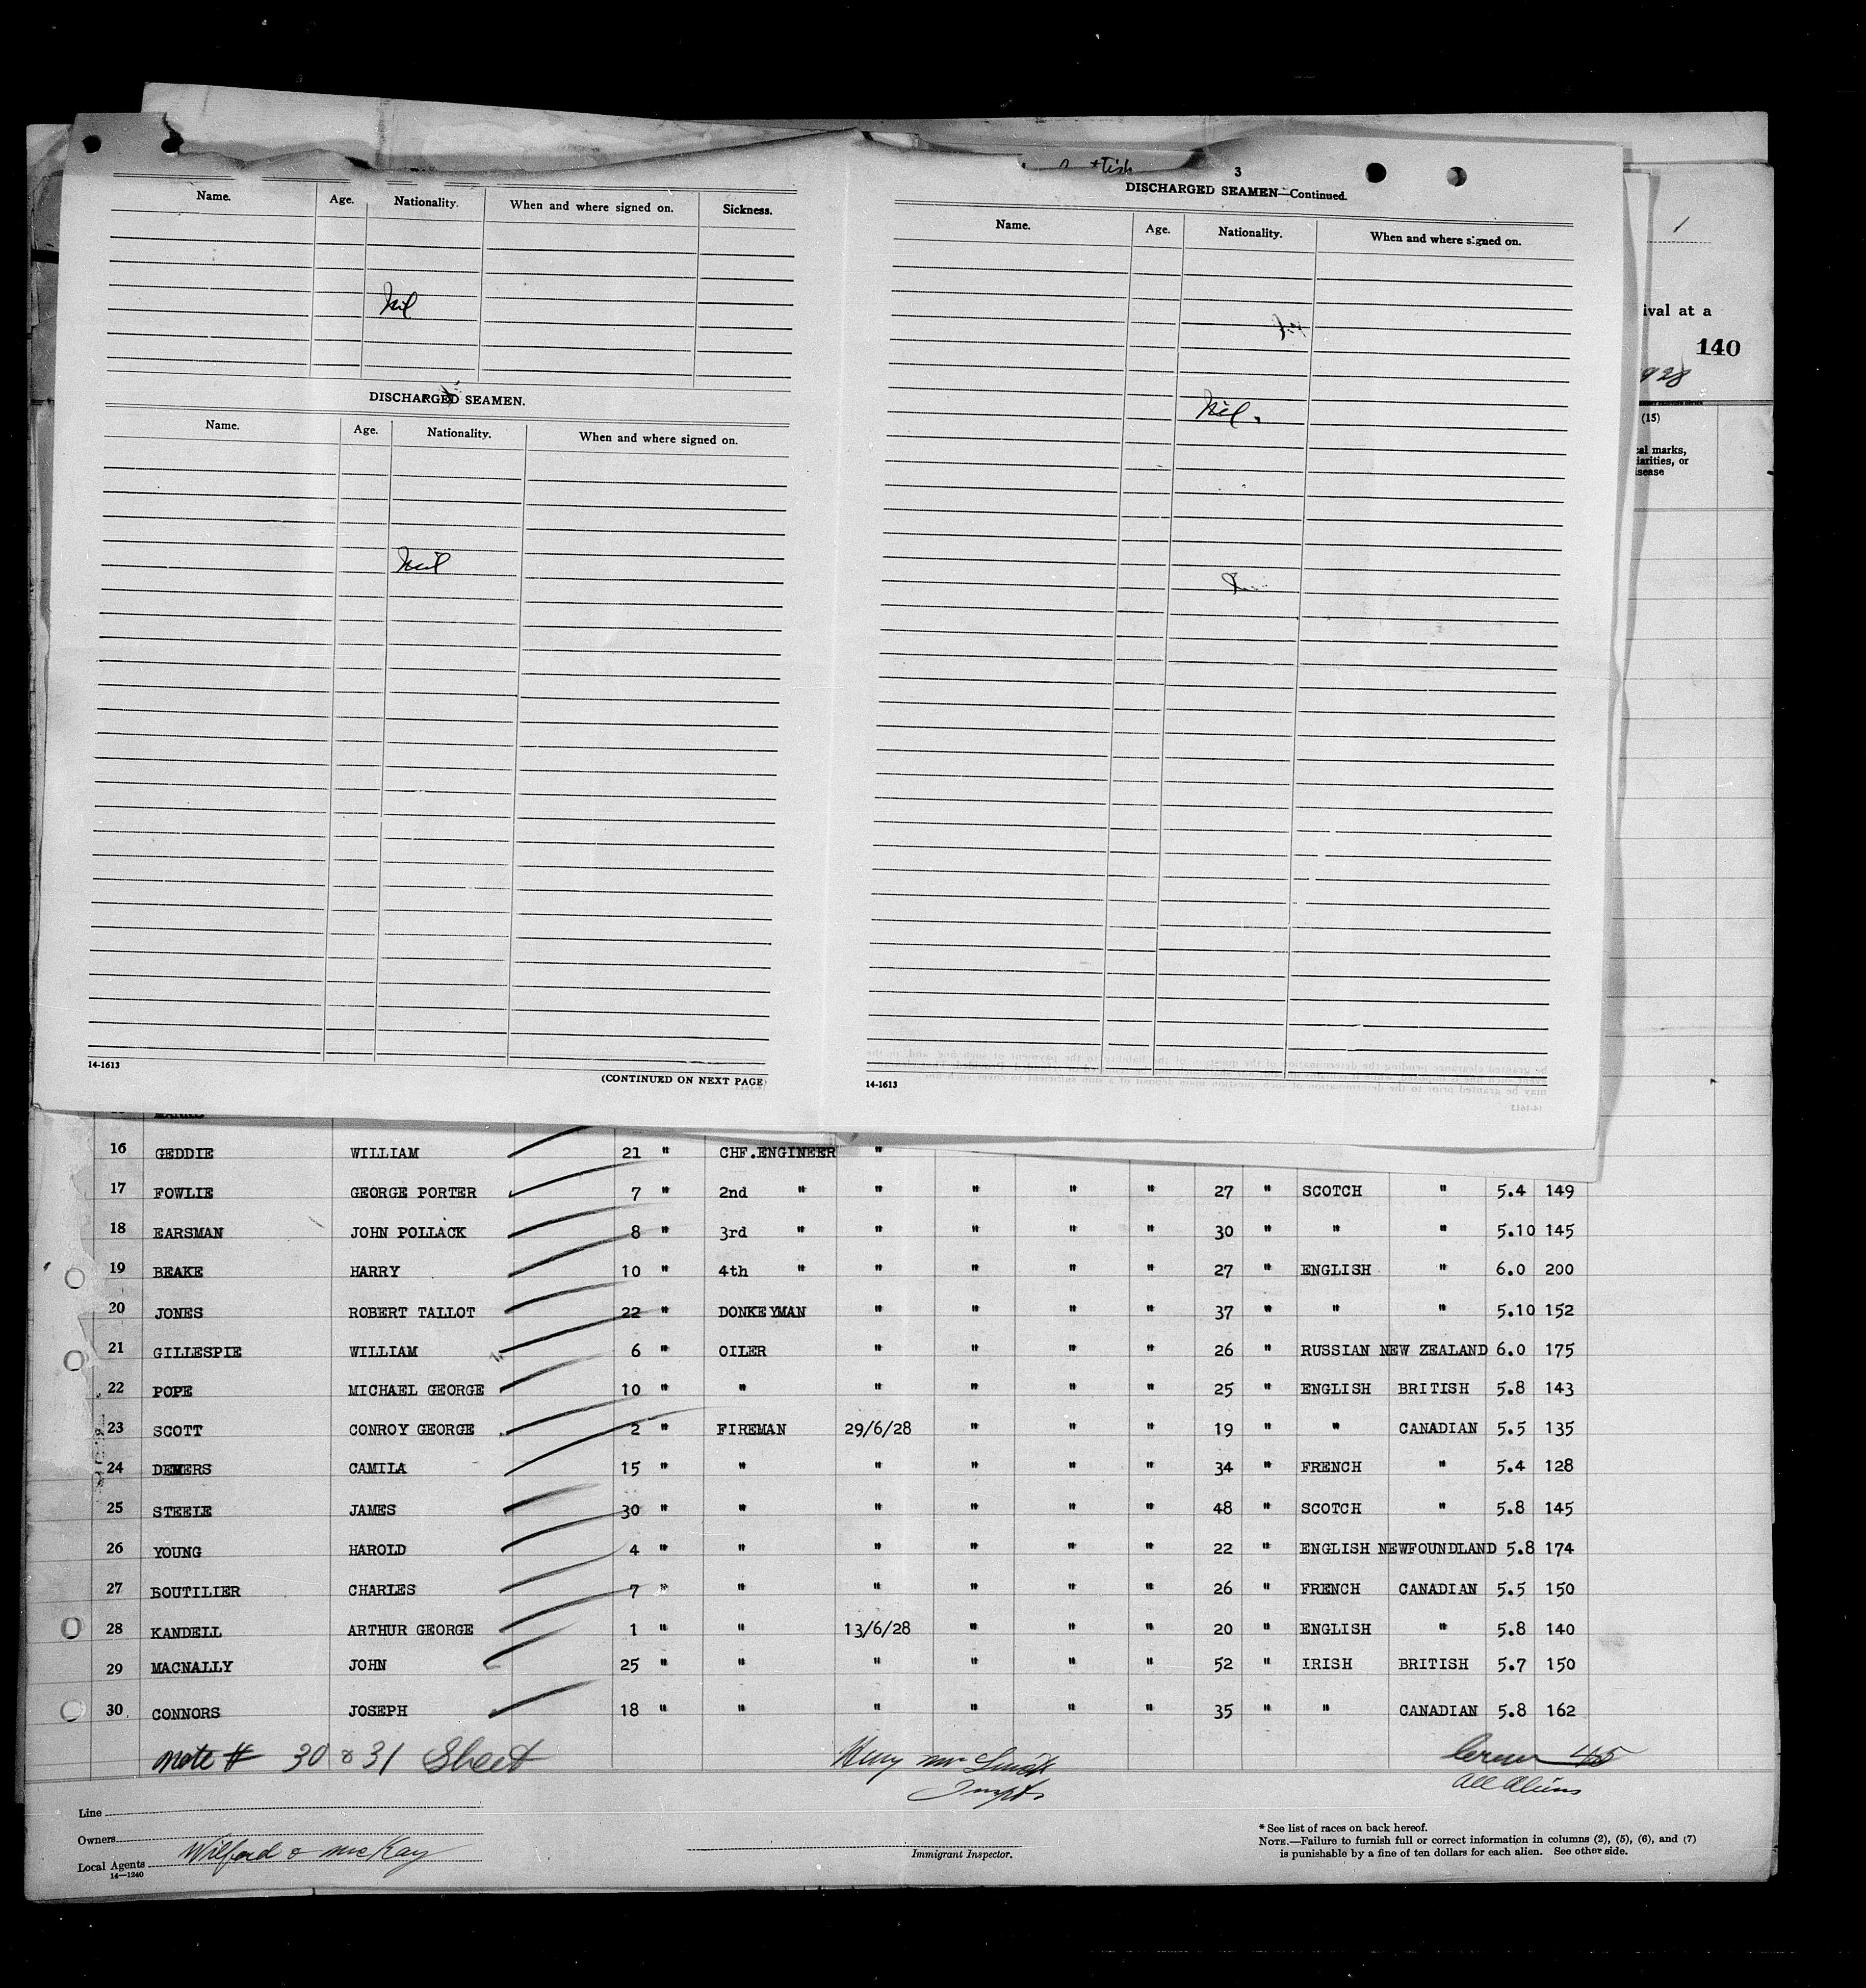 Name. Age. Nationality. When and where signed on. Sickness.
Nil
DISCHARGED SEAMEN.
Name. Age. Nationality. When and where signed on.
Nil
14-1613
(CONTINUED ON NEXT PAGE
3
DISCHARGED SEAMEN—Continued.
Name. Age. Nationality. When and where signed on.
Nil.
14-1613
1
ival at a
140
928
(15)
cal marks,
iarities, or
isease
16 GEDDIE WILLIAM 21 " CHF.ENGINEER "
17 FOWLIE GEORGE PORTER 7 " 2nd " " " " " 27 " SCOTCH " 5.4 149
18 EARSMAN JOHN POLLACK 8 " 3rd " " " " " 30 " " " 5.10 145
19 BEAKE HARRY 10 " 4th " " " " " 27 " ENGLISH " 6.0 200
20 JONES ROBERT TALLOT 22 " DONKEYMAN " " " " 37 " " " 5.10 152
21 GILLESPIE WILLIAM 6 " OILER " " " " 26 " RUSSIAN NEW ZEALAND 6.0 175
22 POPE MICHAEL GEORGE 10 " " " " " " 25 " ENGLISH BRITISH 5.8 143
23 SCOTT CONROY GEORGE 2 " FIREMAN 29/6/28 " " " 19 " " CANADIAN 5.5 135
24 DEMERS CAMILA 15 " " " " " " 34 " FRENCH " 5.4 128
25 STEELE JAMES 30 " " " " " " 48 " SCOTCH " 5.8 145
26 YOUNG HAROLD 4 " " " " " " 22 " ENGLISH NEWFOUNDLAND 5.8 174
27 BOUTILIER CHARLES 7 " " " " " " 26 " FRENCH CANADIAN 5.5 150
28 KANDELL ARTHUR GEORGE 1 " " 13/6/28 " " " 20 " ENGLISH " 5.8 140
29 MACNALLY JOHN 25 " " " " " " 52 " IRISH BRITISH 5.7 150
30 CONNORS JOSEPH 18 " " " " " " 35 " " CANADIAN 5.8 162
note # 30 & 31 Sheet
45
All Aliens
Line
Owners
Local Agents Wilford & McKay
14—1240
Immigrant Inspector.
* See list of races on back hereof.
NOTE.—Failure to furnish full or correct information in columns (2), (5), (6), and (7)
is punishable by a fine of ten dollars for each alien. See other side.